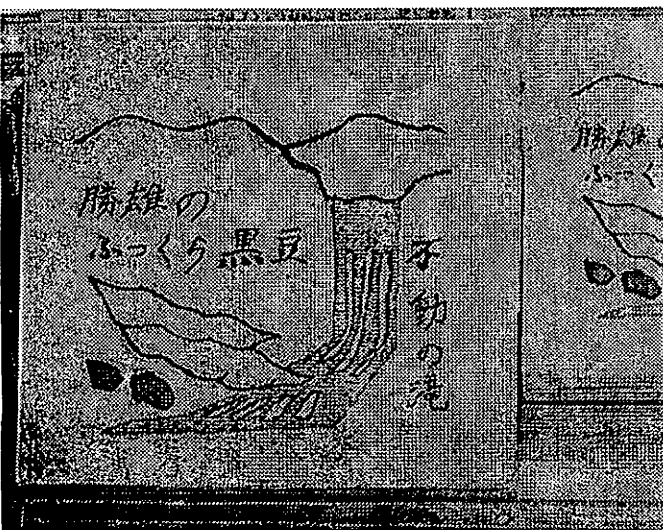 勝雄の
ふっくら黒豆
不動の滝
勝雄
ふっく